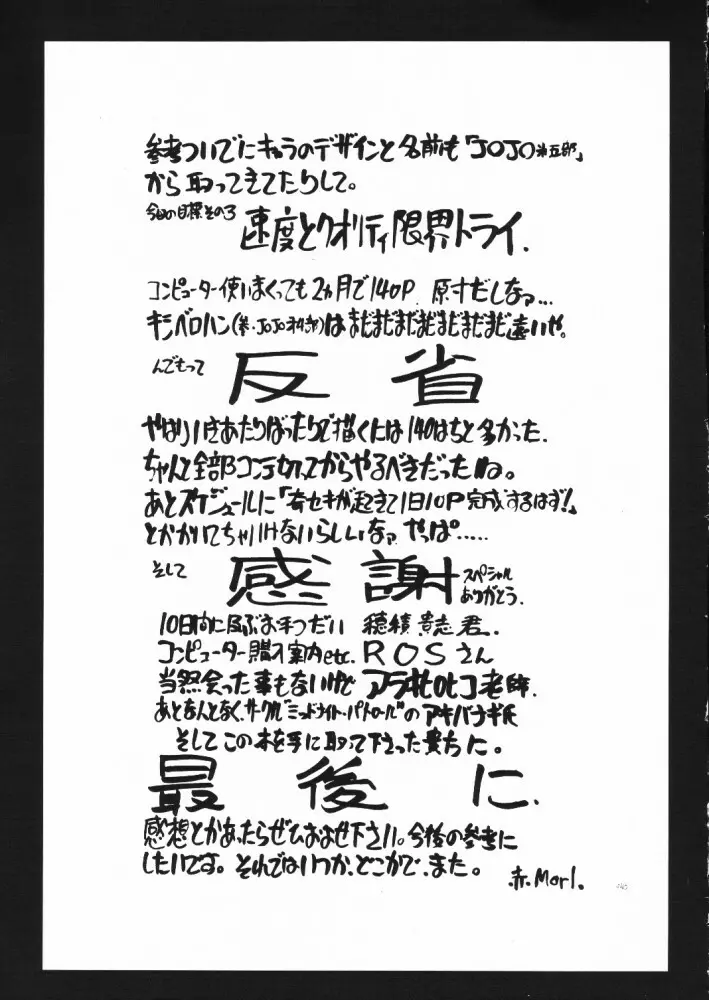 参考ついでにキャラのデザインと名前も「JOJO第五部」
から取ってきてたりして。
今回の目標その3 速度とクオリティ限界トライ.
コンピューター使いまくっても2ヵ月で140P. 原寸だしなァ...
キシベロハン(参・JOJO第4部)はまだまだまだまだまだまだまだ遠いや。
んでもって 反省
やはり行きあたりばったりで描くには140はちと多かった.
ちゃんと全部コンテ切ってからやるべきだったね。
あとスケジュールに「奇セキが起きて1日10P完成するはず!」
とかかいてちゃいけないらしいなァ やっぱ.....
そして 感謝 スペシャル
ありがとう.
10日間に及ぶお手つだい 穂積貴志君.
コンピューター購入案内etc. ROSさん
当然会った事もないけど アラキヒロヒコ老師.
あとなんとなく、サークル"ミッドナイト・パトロール"のアキバナギ氏
そしてこの本を手に取って下さった貴方に。
最後に.
感想とかあったらぜひおよせ下さい。今後の参考に
したいです。それではいつか、どこかで、また。
赤.Morl.